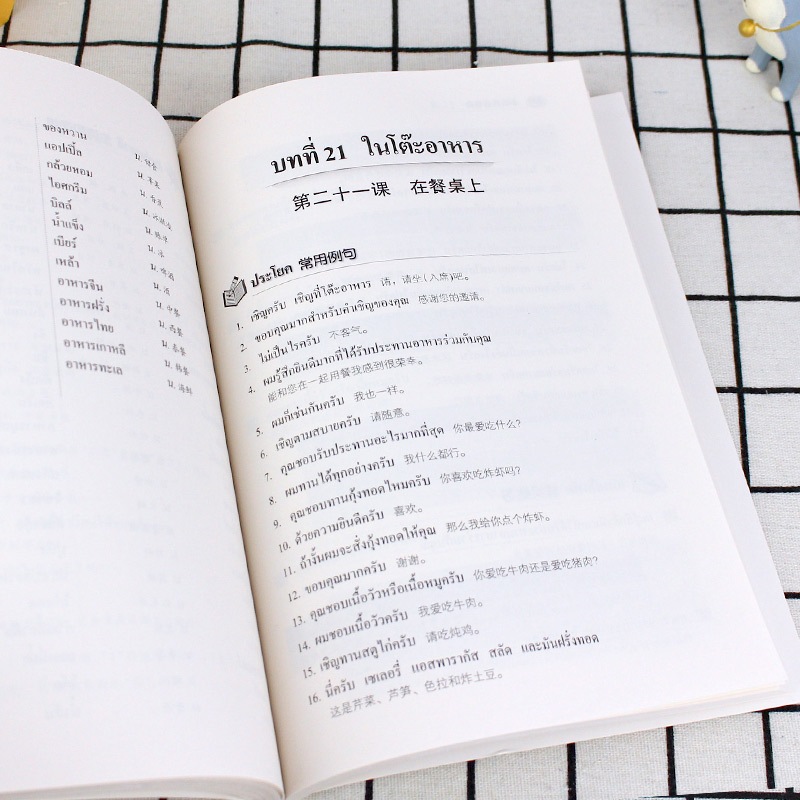 ของหวาน
แอปเปิ้ล
กล้วยหอม
ไอศกรีม
บิลล์
น้ำแข็ง
เบียร์ น. 啤酒
เหล้า น. 酒
อาหารจีน น. 中餐
อาหารฝรั่ง น. 西餐
อาหารไทย น. 泰餐
อาหารเกาหลี น. 韩餐
อาหารทะเล น. 海鲜
บทที่ 21 ในโต๊ะอาหาร
第二十一课 在餐桌上
ประโยค 常用例句
1. เชิญครับ เชิญที่โต๊ะอาหาร 请，请坐(入席)吧。
2. ขอบคุณมากสำหรับคำเชิญของคุณ 感谢您的邀请。
3. ไม่เป็นไรครับ 不客气。
4. ผมรู้สึกยินดีมากที่ได้รับประทานอาหารร่วมกับคุณ
能和您在一起用餐我感到很荣幸。
5. ผมก็เช่นกันครับ 我也一样。
6. เชิญตามสบายครับ 请随意。
7. คุณชอบรับประทานอะไรมากที่สุด 你最爱吃什么?
8. ผมทานได้ทุกอย่างครับ 我什么都行。
9. คุณชอบทานกุ้งทอดไหมครับ 你喜欢吃炸虾吗?
10. ด้วยความยินดีครับ 喜欢。
11. ถ้างั้นผมจะสั่งกุ้งทอดให้คุณ 那么我给你点个炸虾。
12. ขอบคุณมากครับ 谢谢。
13. คุณชอบเนื้อวัวหรือเนื้อหมูครับ 你爱吃牛肉还是爱吃猪肉?
14. ผมชอบเนื้อวัวครับ 我爱吃牛肉。
15. เชิญทานสตูไก่ครับ 请吃炖鸡。
16. นี่ครับ เซเลอรี่ แอสพารากัส สลัด และมันฝรั่งทอด
这是芹菜、芦笋、色拉和炸土豆。